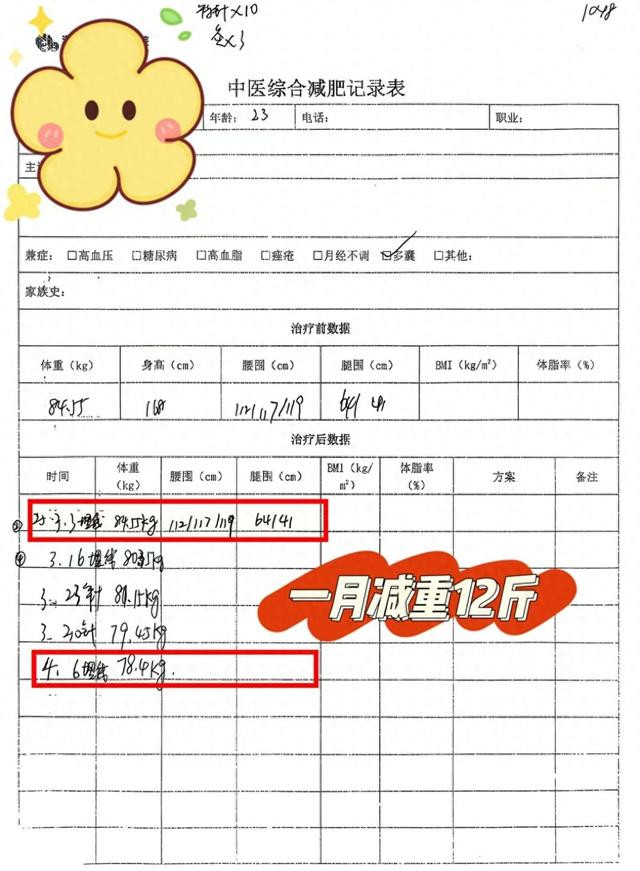 ×10
1048
×3
中医综合减肥记录表
年龄: 23 电话: 职业:
主
兼症: □高血压 □糖尿病 □高血脂 □痤疮 □月经不调 □多囊 □其他:
家族史:
治疗前数据
体重 (kg) 身高 (cm) 腰围 (cm) 腿围 (cm) BMI (kg/m²) 体脂率 (%)
84.55 168 112/117/119 64/41
治疗后数据
时间 体重 (kg) 腰围 (cm) 腿围 (cm) BMI (kg/m²) 体脂率 (%) 方案 备注
3.3 埋线 84.55kg 112/117/119 64/41
④ 3.16 埋线 kg
3.23 针 81.15kg
3.30 针 79.45kg
4.6 埋线 78.4kg.
一月减重12斤